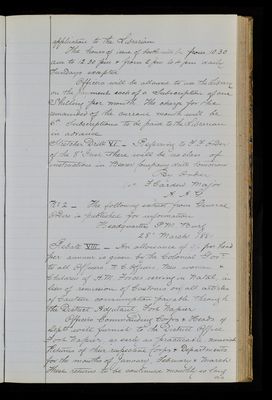 application to the Librarian
The hours of issue of books will be from 10.30
am to 12.30 pm & from 2 pm to 4 pm daily
Sundays excepted
Officers will be allowed to use the Library
on the payment each of a Subscription of one
Shilling per month. The charge for the
remainder of the current month will be
6d. Subscriptions to be paid to the Librarian
in advance
Stretcher Drill VI — Referring to F. F. Order
of the 8th Inst. there will be no class of
instruction in Bearer Company drill tomorrow
By Order
Major
A. A. G
The following extract from General
Orders is published for information
Headquarters P.M. Burg
28th March 1881
Rebate VIII — An allowance of per head
per annum is given by the Colonial Govt
to all Officers N. C. Officers Men women &
Children of H.M. Forces serving in Natal in
lieu of remission of Customs on all articles
of Canteen consumption payable through
the District Adjutant Fort Napier
Officers Commanding Corps & Heads of
Depts will furnish to the District Office
Fort Napier as early as practicable numerical
Returns of their respective Corps & Departments
for the months of January February & March
These returns to be continued monthly so long